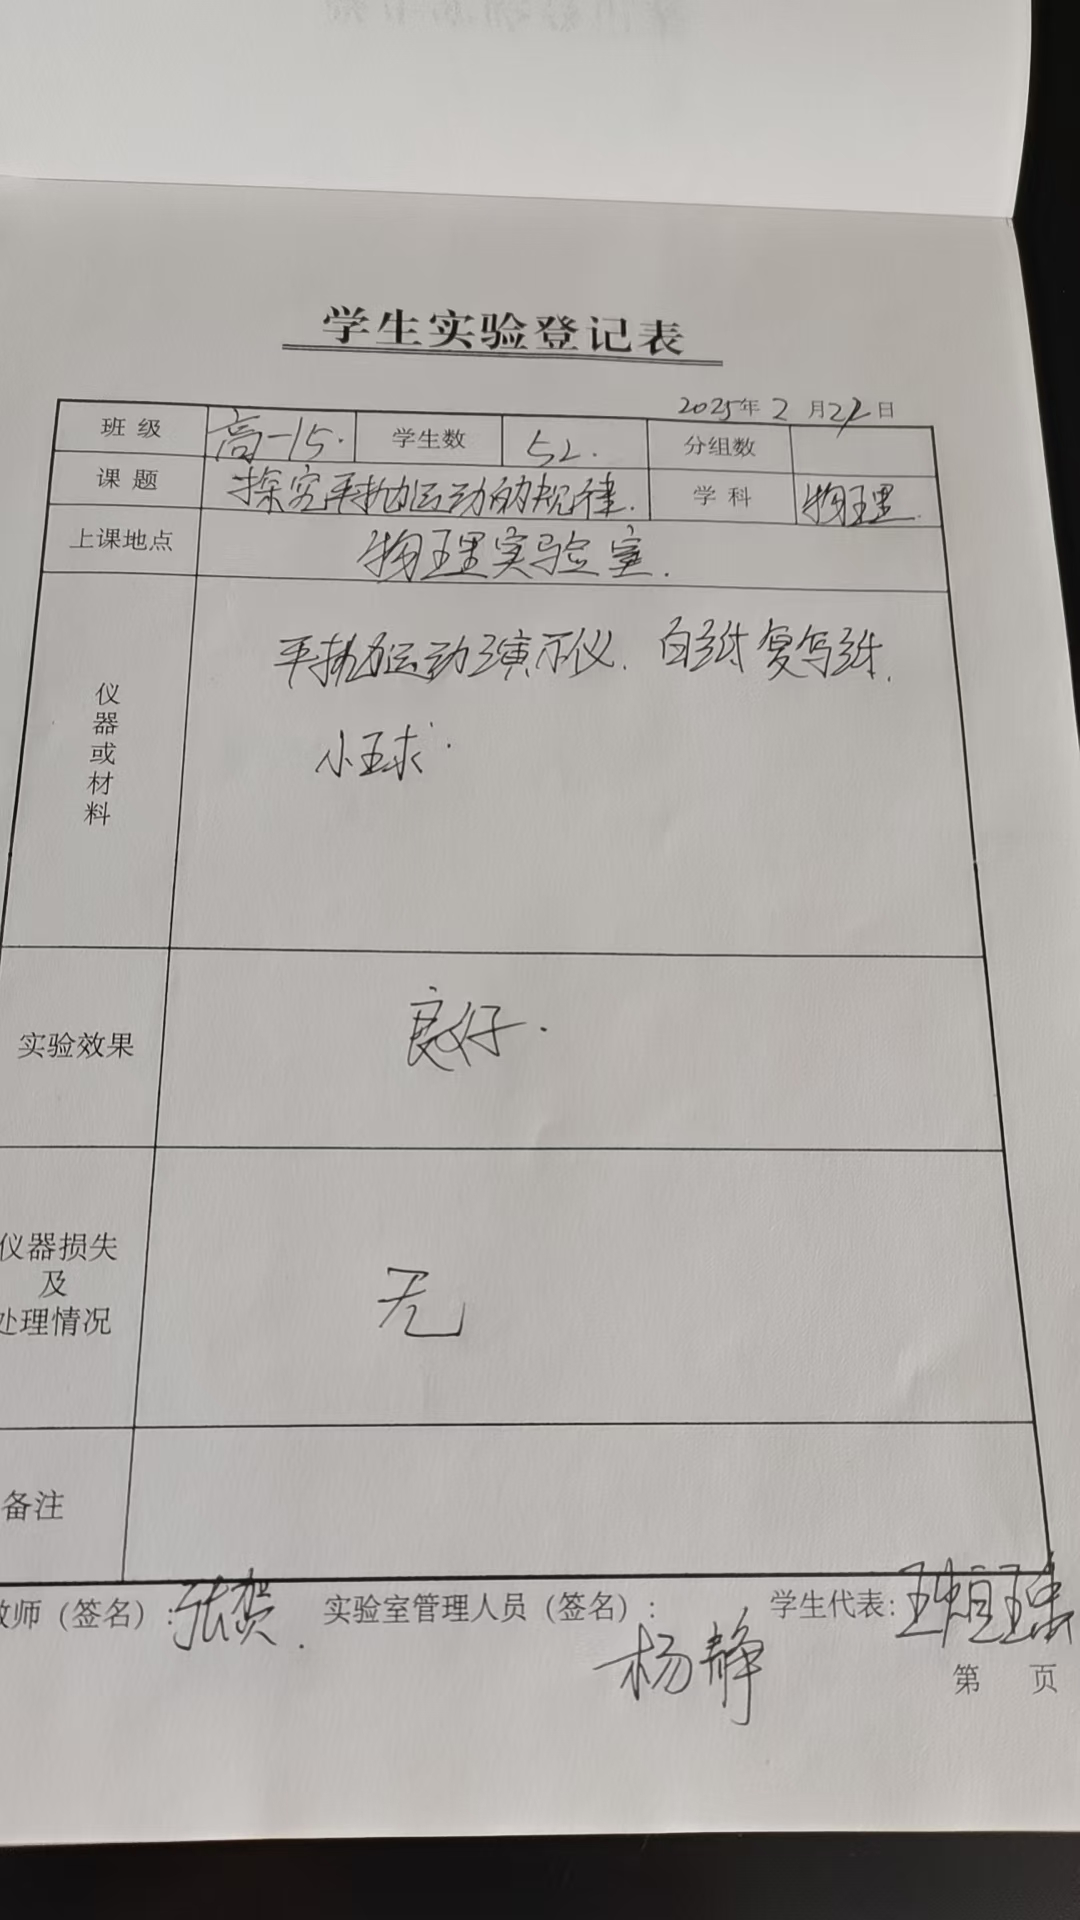 学生实验登记表
2025年 2 月22日
班级 高一15. 学生数 52. 分组数
课题 探究平抛运动的规律. 学科 物理.
上课地点 物理实验室.
仪器或材料 平抛运动演示仪. 白纸 复写纸.
小球.
实验效果 良好.
仪器损失
及
处理情况 无
备注
教师（签名）：张贺. 实验室管理人员（签名）： 学生代表：
杨静
第 页